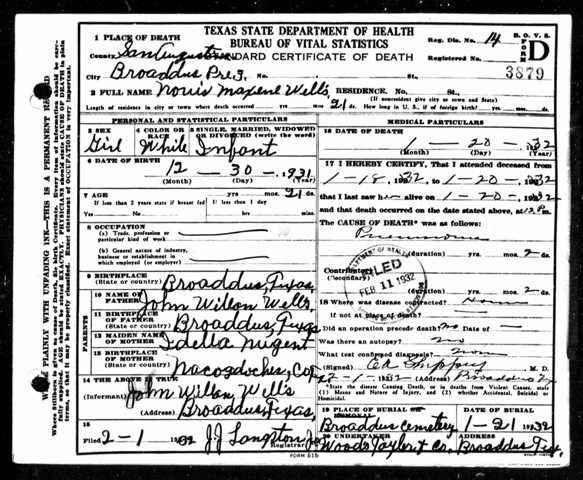 TEXAS STATE DEPARTMENT OF HEALTH
BUREAU OF VITAL STATISTICS
STANDARD CERTIFICATE OF DEATH
B. O. V. S.
FORM D
Reg. Dis. No. 14
Registered No. 3879
1 PLACE OF DEATH
County San Augustine
City Broaddus Pre. 3, No. St.
2 FULL NAME Norris Maxene Wells, RESIDENCE. No. St.,
(If nonresident give city or town and State)
Length of residence in city or town where death occurred yrs mos 21 ds. How long in U. S., if of foreign birth? yrs. mos. ds.
PERSONAL AND STATISTICAL PARTICULARS
3 SEX Girl
4 COLOR OR RACE White
5 SINGLE, MARRIED, WIDOWED OR DIVORCED (write the word) Infant
6 DATE OF BIRTH
12 - 30 - 1931
(Month) (Day) (Year)
7 AGE yrs. mos. 21 ds.
If less than 2 years state if breast fed If less than 1 day
Yes No hrs. min.
8 OCCUPATION
(a) Trade, profession or particular kind of work
(b) General nature of industry, business or establishment in which employed (or employer)
9 BIRTHPLACE (State or country) Broaddus, Texas,
PARENTS
10 NAME OF FATHER John Willon Wells,
11 BIRTHPLACE OF FATHER (State or country) Broaddus, Texas
12 MAIDEN NAME OF MOTHER Idella Nugent
13 BIRTHPLACE OF MOTHER (State or country) Nacogdoches, Co.
14 THE ABOVE IS TRUE
(Informant) John Willon, Wells
(Address) Broaddus, Texas,
15
Filed 2-1 1932 J.J. Langston Registrar
MEDICAL PARTICULARS
16 DATE OF DEATH
1 - 20 - 1932
(Month) (Day) (Year)
17 I HEREBY CERTIFY, That I attended deceased from
1-18, 1932, to 1-20-1932
that I last saw her alive on 1-20-1932
and that death occurred on the date stated above, at
The CAUSE OF DEATH* was as follows:
Pneumonia
(duration) yrs. mos. 2 ds.
Contributory (Secondary)
(duration) yrs. mos. 2 ds.
DEPARTMENT OF HEALTH
FILED
FEB 11 1932
18 Where was disease contracted Home
If not at place of death?
Did an operation precede death? No Date of
Was there an autopsy? no
What test confirmed diagnosis? none
M. D.
2-1-1932 (Address) Broaddus Tx
*State the disease Causing Death, or in deaths from Violent Causes, state (1) Means and Nature of Injury, and (2) whether Accidental, Suicidal or Homicidal.
19 PLACE OF BURIAL OR REMOVAL Broaddus Cemetery
DATE OF BURIAL 1-21 1932
20 UNDERTAKER Woods Taylor & Co.
ADDRESS Broaddus Tex.
FORM 515